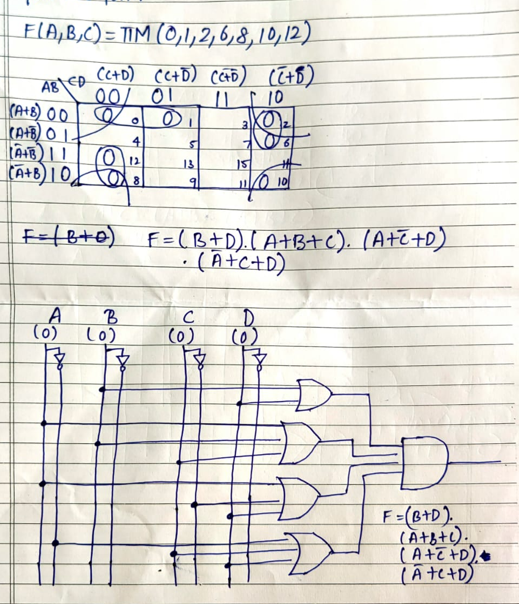 F(A,B,C) = πM (0,1,2,6,8,10,12)
(C+D) (C+D̄) (C̄+D̄) (C̄+D)
AB \ CD 00 01 11 10
(A+B) 00 0 0 0 1 3 0 2
(A+B̄) 01 4 5 7 0 6
(Ā+B̄) 11 0 12 13 15 14
(Ā+B) 10 0 8 9 11 0 10
F=(B+D) F=(B+D).(A+B+C).(A+C̄+D)
.(Ā+C+D)
A B C D
(0) (0) (0) (0)
F=(B+D).
(A+B+C).
(A+C̄+D).
(Ā+C+D)